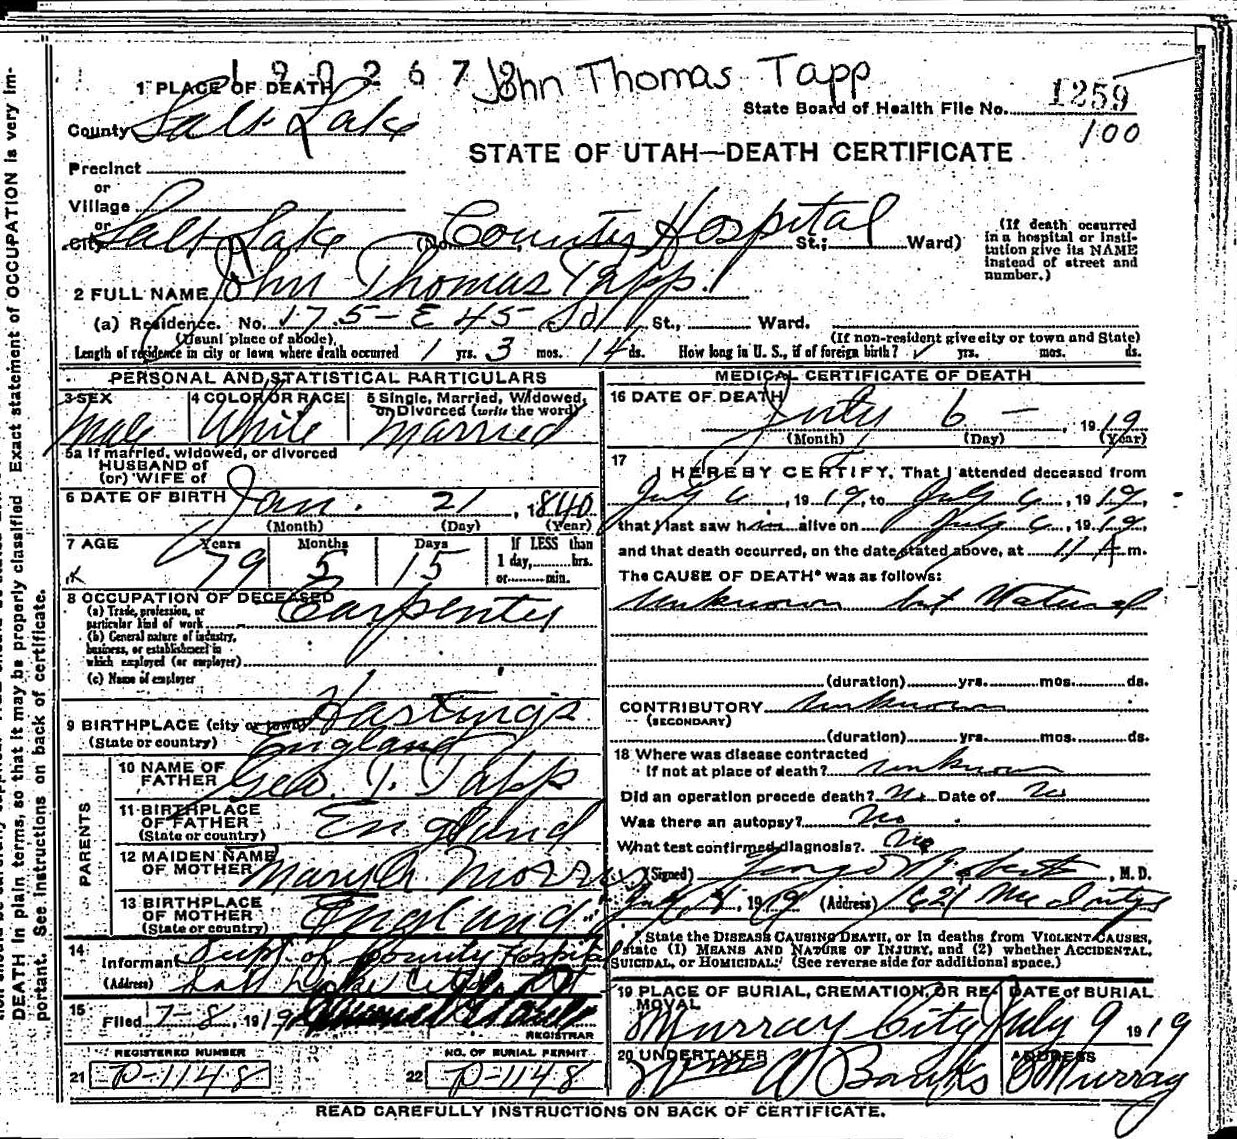 1902673 John Thomas Tapp
1 PLACE OF DEATH
State Board of Health File No. 1259
County Salt Lake
100
STATE OF UTAH—DEATH CERTIFICATE
Precinct
or
Village
or
City Salt Lake (No. County Hospital St.; Ward)
(If death occurred in a hospital or institution give its NAME instead of street and number.)
2 FULL NAME John Thomas Tapp.
(a) Residence. No. 175- E 45- So St., Ward.
(Usual place of abode)
(If non-resident give city or town and State)
Length of residence in city or town where death occurred 1 yrs. 3 mos. 14 ds. How long in U. S., if of foreign birth? ✓ yrs. mos. ds.
PERSONAL AND STATISTICAL PARTICULARS
3 SEX Male
4 COLOR OR RACE White
5 Single, Married, Widowed, or Divorced (write the word) Married
5a If married, widowed, or divorced
HUSBAND of
(or) WIFE of
6 DATE OF BIRTH Jan. 21, 1840
(Month) (Day) (Year)
7 AGE Years Months Days If LESS than
79 5 15 1 day, hrs.
or min.
8 OCCUPATION OF DECEASED Carpenter
(a) Trade, profession, or
particular kind of work
(b) General nature of industry,
business, or establishment in
which employed (or employer)
(c) Name of employer
9 BIRTHPLACE (city or town) Hastings
(State or country) England
PARENTS
10 NAME OF FATHER Geo. T. Tapp
11 BIRTHPLACE OF FATHER England
(State or country)
12 MAIDEN NAME OF MOTHER Mary A Morris
13 BIRTHPLACE OF MOTHER England
(State or country)
14
Informant Supt. of County Hospital
(Address) Salt Lake City
15
Filed 7-8, 1919
REGISTRAR
REGISTERED NUMBER
21 P-1148
NO. OF BURIAL PERMIT
22 P-1148
MEDICAL CERTIFICATE OF DEATH
16 DATE OF DEATH July 6 - , 1919
(Month) (Day) (Year)
17
I HEREBY CERTIFY, That I attended deceased from
July 6, 1919, to July 6, 1919,
that I last saw him alive on July 6, 1919,
and that death occurred, on the date stated above, at 11 A m.
The CAUSE OF DEATH* was as follows:
Unknown but Natural
(duration) yrs. mos. ds.
CONTRIBUTORY Unknown
(SECONDARY)
(duration) yrs. mos. ds.
18 Where was disease contracted
If not at place of death? Unknown
Did an operation precede death? No Date of No
Was there an autopsy? No
What test confirmed diagnosis? No
(Signed) , M. D.
1919 (Address) 621 McIntyre
*State the DISEASE CAUSING DEATH, or in deaths from VIOLENT CAUSES,
state (1) MEANS AND NATURE OF INJURY, and (2) whether ACCIDENTAL,
SUICIDAL, or HOMICIDAL. (See reverse side for additional space.)
19 PLACE OF BURIAL, CREMATION, OR REMOVAL
Murray City
DATE of BURIAL
July 9 1919
20 UNDERTAKER
Wm A Banks
ADDRESS
Murray
READ CAREFULLY INSTRUCTIONS ON BACK OF CERTIFICATE.
DEATH in plain terms, so that it may be properly classified. Exact statement of OCCUPATION is very im-
portant. See instructions on back of certificate.